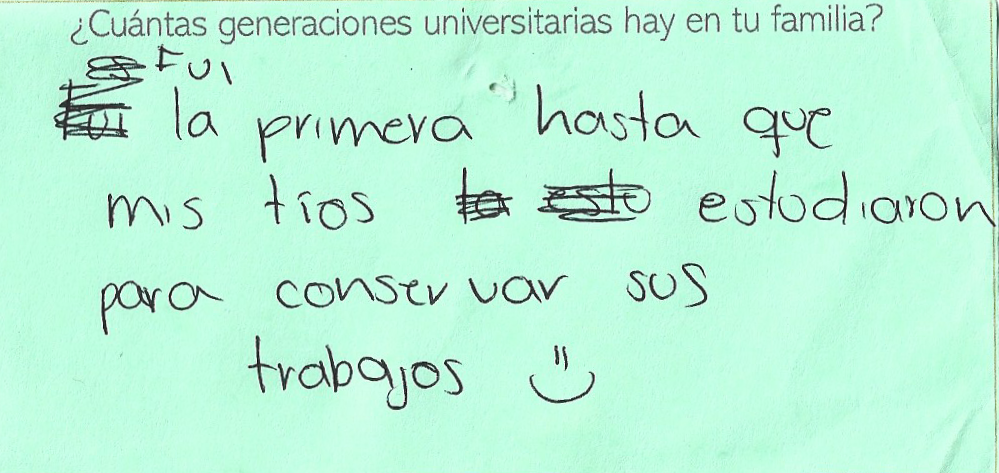 ¿Cuántas generaciones universitarias hay en tu familia?
Fui
la primera hasta que
mis tíos estudiaron
para conservar sus
trabajos